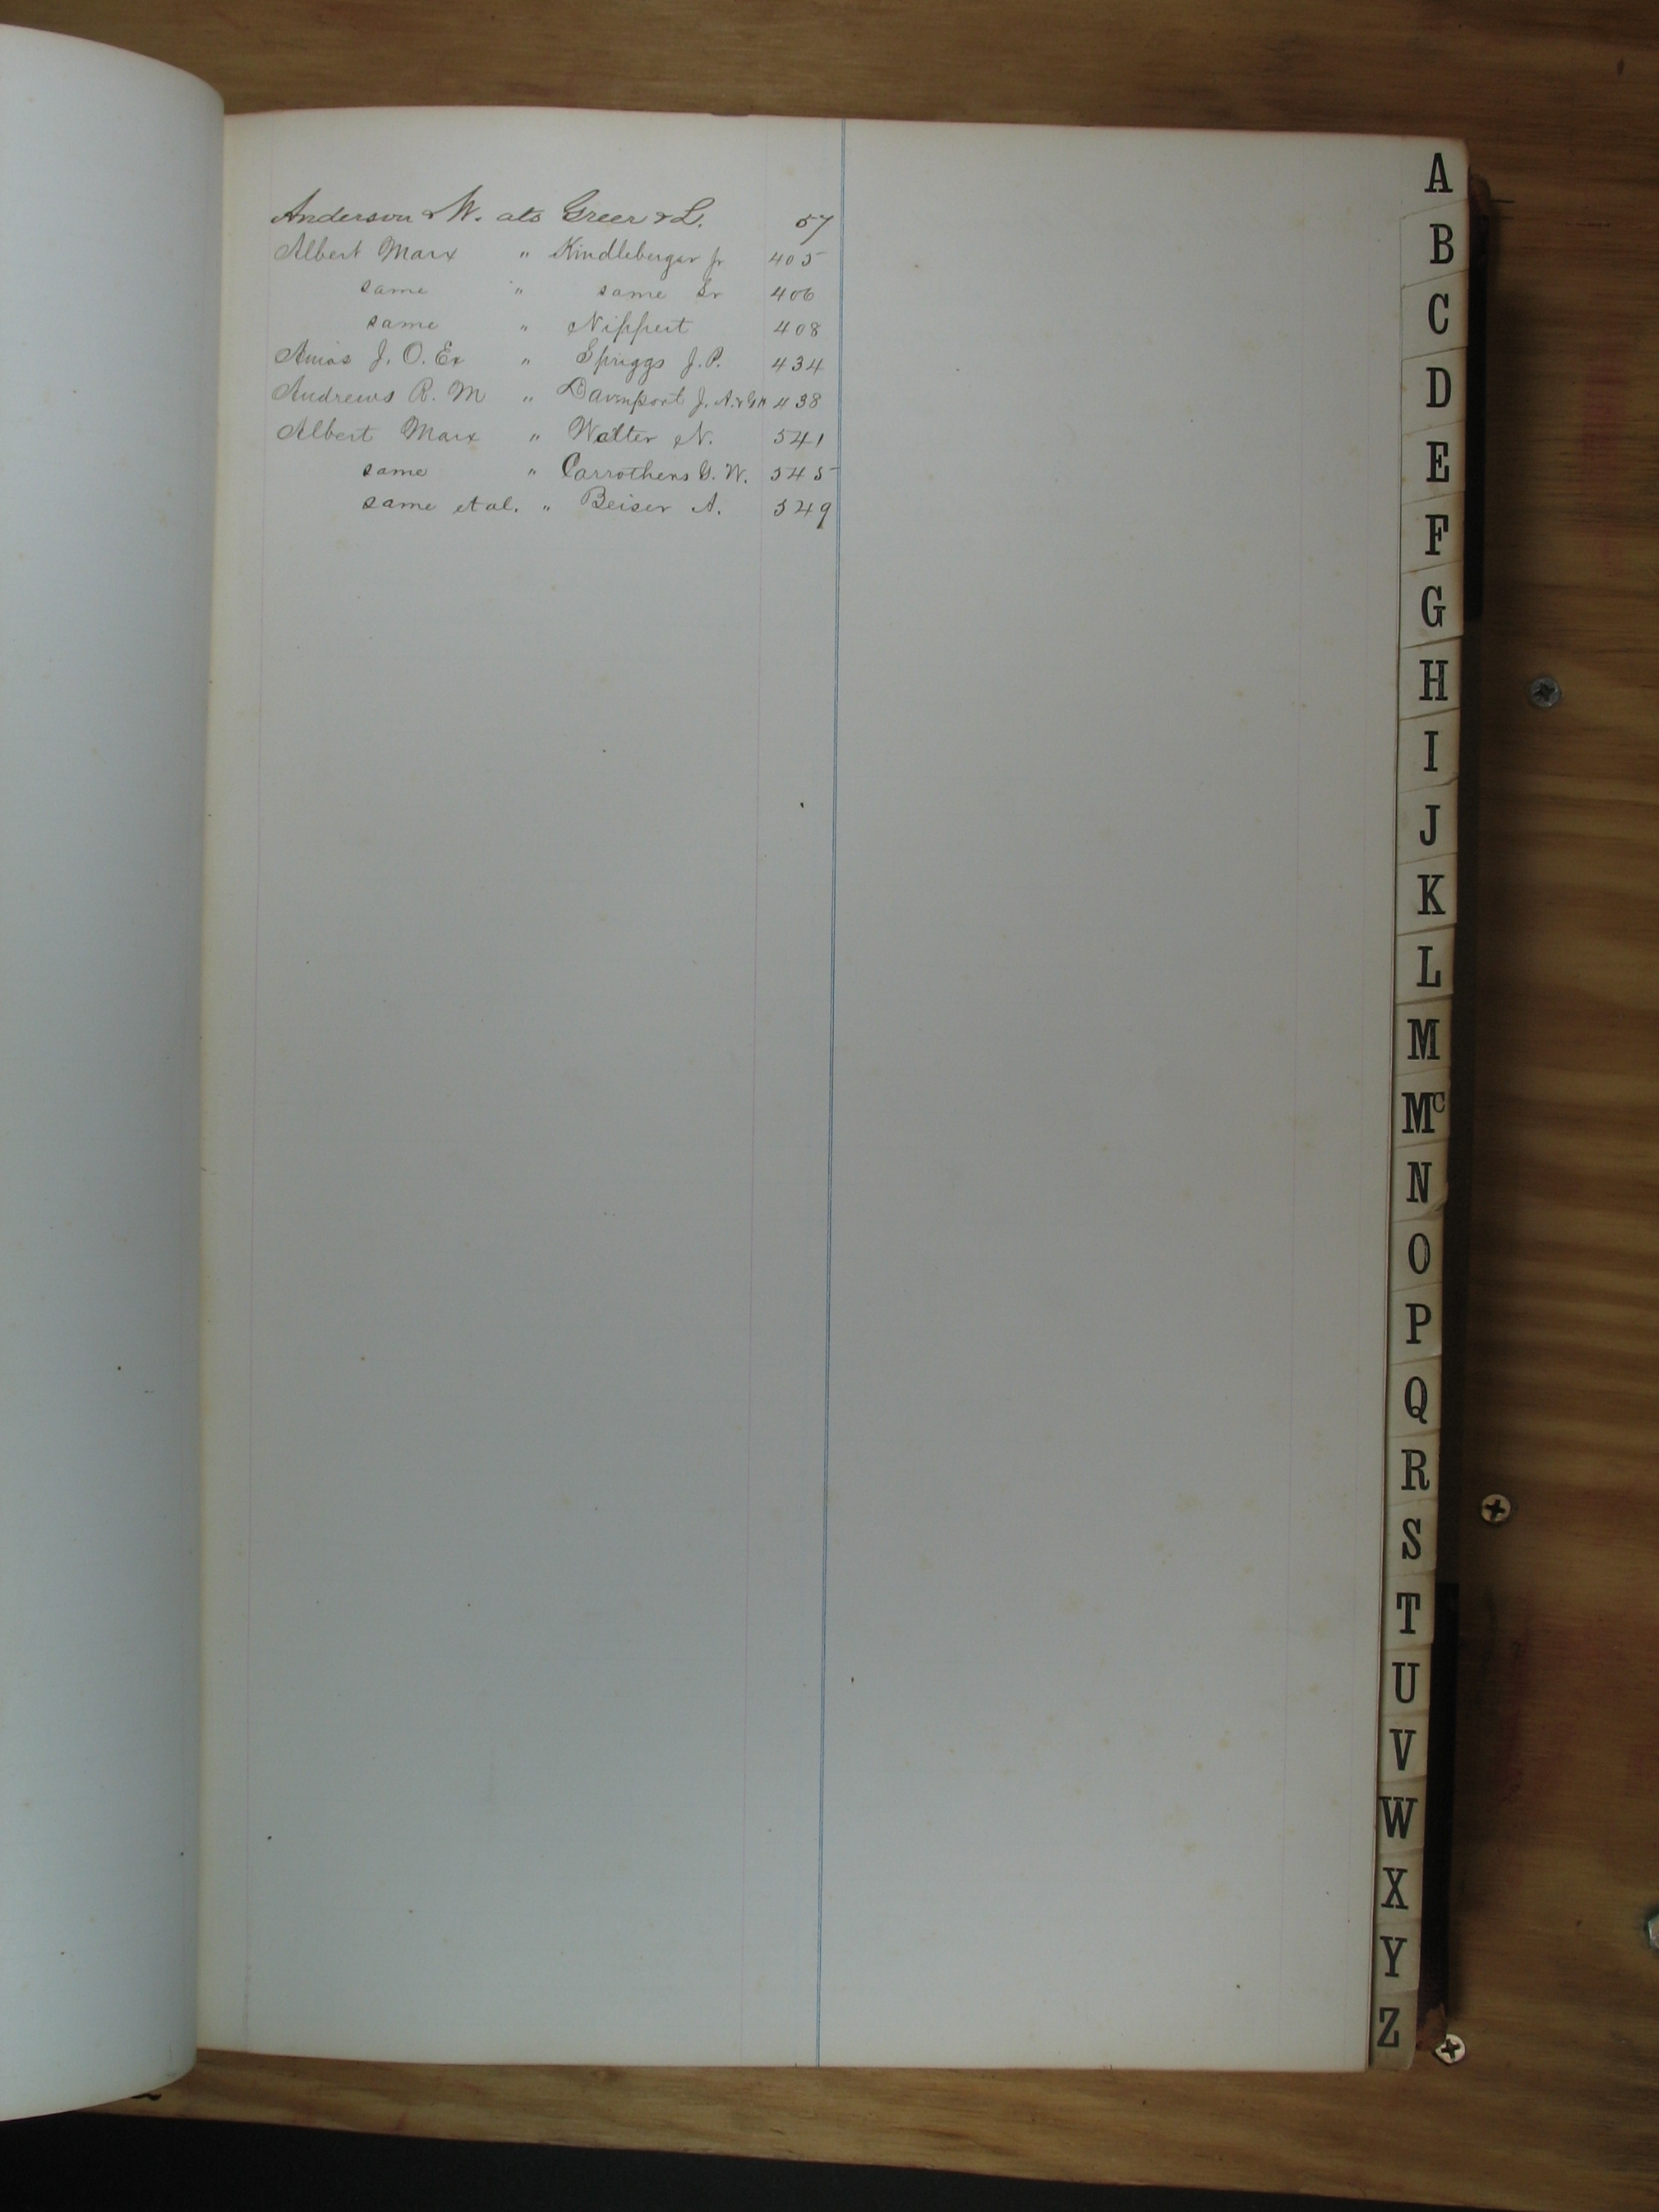 Anderson & W. ats Greer & L. 57
Albert Marx " Kindleberger jr 405
same " same Sr 406
same " Nippert 408
Amos J. O. Ex " Spriggs J. P. 434
Andrews R. M " Davenport J. A. & G 438
Albert Marx " Walter N. 541
same " Carrothers G. W. 545
same et al. " Beiser A. 549
A
B
C
D
E
F
G
H
I
J
K
L
M
Mc
N
O
P
Q
R
S
T
U
V
W
X
Y
Z